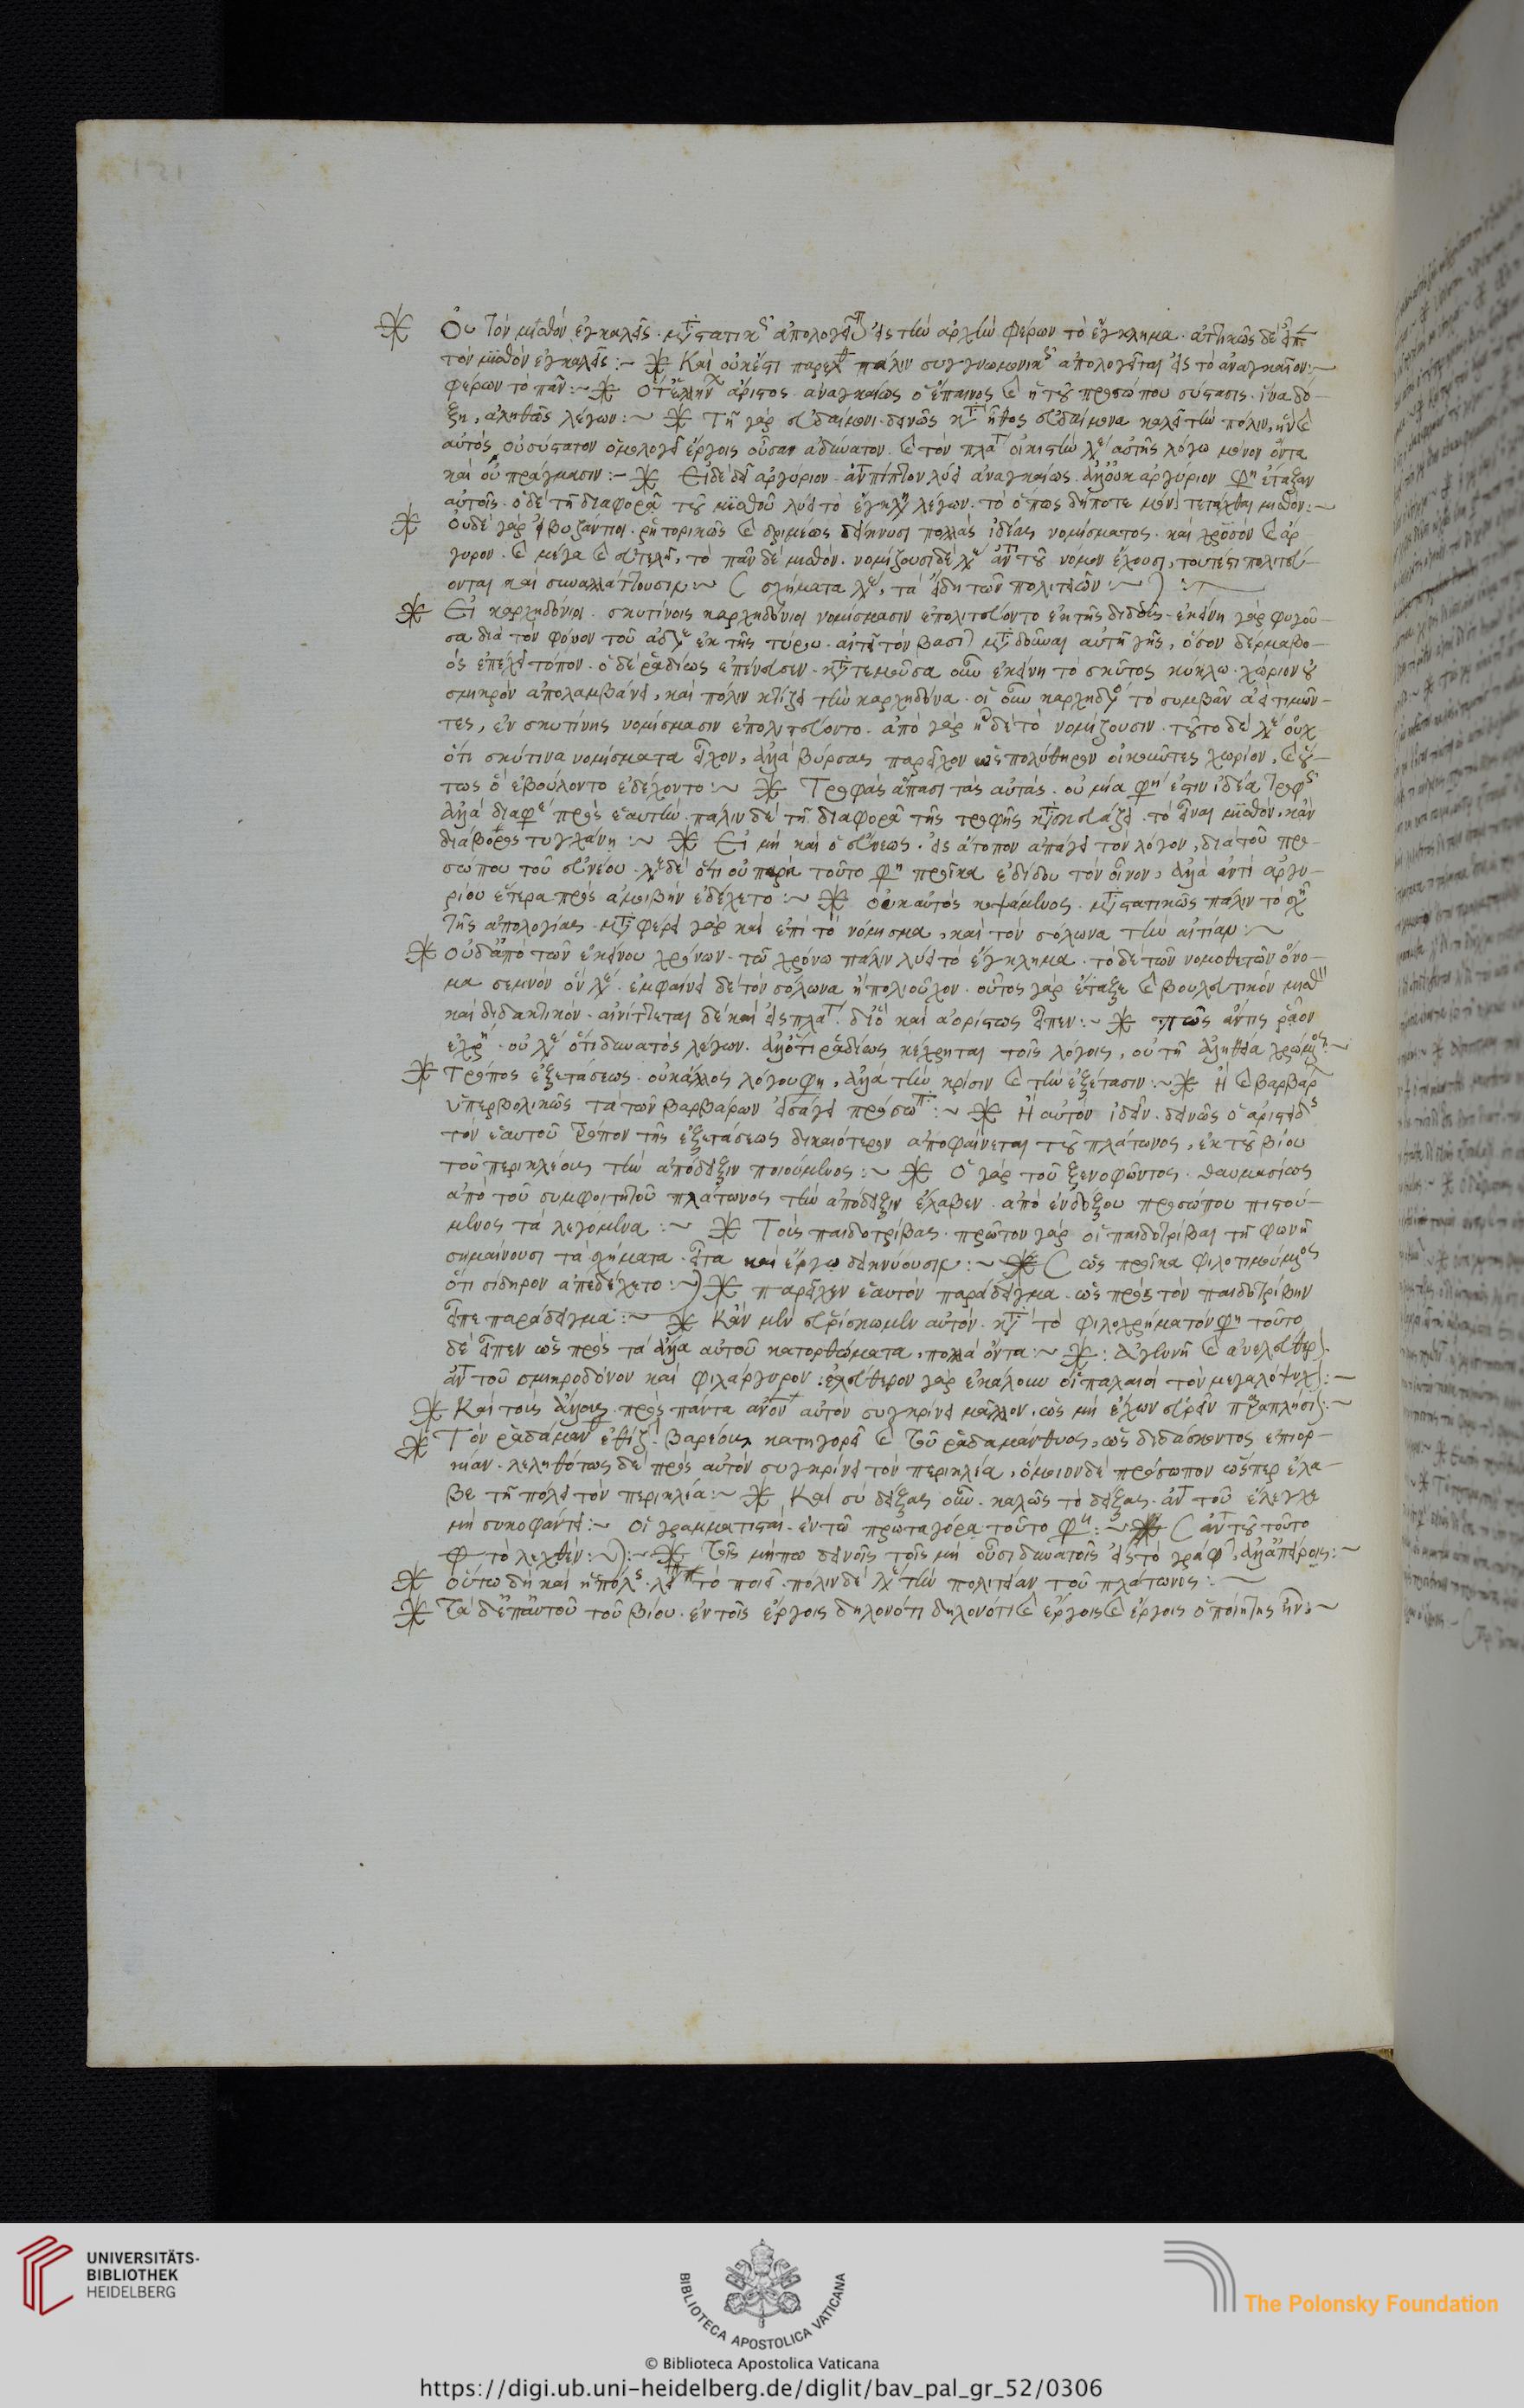 Οὐ τὸν μισθὸν ἐγκαλεῖς. ἀπολογεῖται εἰς τὴν ἀρχὴν φέρων τὸ ἔγκλημα. ἀττικῶς δὲ
τὸν μισθὸν ἐγκαλεῖς :~ ※ Καὶ οὐκέτι πάλιν ἀπολογεῖται εἰς τὸ ἀναγκαῖον :~
φέρων τὸ πᾶν :~ ※ ἄριστος. ἀναγκαίως ὁ ἔπαινος καὶ ἡ τοῦ προσώπου σύστασις. ἵνα δό-
ξη, ἀληθῶς λέγων :~ ※ Τῇ γὰρ εὐδαίμονι. δεινῶς εὐδαίμονα καλεῖ τὴν πόλιν, ἣν καὶ
αὐτὸς ὁμολογεῖ ἔργοις οὖσαν ἀδύνατον. καὶ τὸν πλατ οἰκιστὴν λέγει αὐτῆς λόγω μόνον ὄντα
καὶ οὐ πράγμασιν :~ ※ Εἰ δὲ δεῖ ἀργύριον. ἀντιπίπτον λύει ἀναγκαίως. ἀλλ' οὐκ ἀργύριον φησὶν ἔταξαν
αὐτοῖς. ὁ δὲ τῇ διαφορᾷ τοῦ μισθοῦ λύει τὸ ἔγκλημα λέγων. τὸ ὅπως δήποτε τετάχθαι μισθόν :~
※ Οὐδὲ γὰρ οἱ βυζάντιοι. ῥητορικῶς καὶ δριμέως δείκνυσι πολλὰς ἰδέας νομίσματος. καὶ χρυσὸν καὶ ἄρ
γυρον. καὶ μέγα καὶ εὐτελῆ, τὸ πᾶν δὲ μισθόν. νομίζουσι δὲ λέγει ἀντὶ τοῦ νόμον ἔχουσι, τουτέστι πολιτεύ-
ονται καὶ συναλλάττουσιν :~ ( σχήματα λέγει, τὰ εἴδη τῶν πολιτειῶν :~ ) :~
※ Οἱ καρχηδόνιοι. σκυτίνοις καρχηδόνιοι νομίσμασιν ἐπολιτεύοντο ἐκ τῆς διδοῦς. ἐκείνη γὰρ φυγοῦ-
σα διὰ τὸν φόνον τοῦ ἀδελφοῦ ἐκ τῆς τύρου. αἰτεῖ τὸν βασιλ δοῦναι αὐτῇ γῆς, ὅσον δέρμα βο-
ὸς ἐπέχει τόπον. ὁ δὲ ῥαδίως ἐπένευσεν. τεμοῦσα οὖν ἐκείνη τὸ σκῦτος κύκλω. χωρίον οὐ
σμικρὸν ἀπολαμβάνει, καὶ πόλιν κτίζει τὴν καρχηδόνα. οἱ οὖν καρχηδόνιοι τὸ συμβὰν ἀεὶ τιμῶν-
τες, ἐν σκυτίνης νομίσμασιν ἐπολιτεύοντο. ἀπὸ γὰρ τὸ νομίζουσιν. τοῦτο δὲ λέγει οὐχ
ὅτι σκύτινα νομίσματα εἶχον, ἀλλὰ βύρσας παρεῖχον ὡς πολύθηρον οἰκοῦντες χωρίον, καὶ οὕ-
τως ὃ ἐβούλοντο ἐδέχοντο :~ ※ Τροφὰς ἅπασι τὰς αὐτάς. οὐ μία φησὶν ἔστιν ἰδέα τροφῆς
ἀλλὰ διαφέρει πρὸς ἑαυτήν. πάλιν δὲ τῇ διαφορᾷ τῆς τροφῆς κατασκευάζει τὸ εἶναι μισθόν, κἂν
διάφορος τυγχάνῃ :~ ※ Εἰ μὴ καὶ ὁ εὔνεως. εἰς ἄτοπον ἀπάγει τὸν λόγον, διὰ τοῦ προ-
σώπου τοῦ εὐνέου. λέγει δὲ ὅτι οὐ παρὰ τοῦτο φησὶ προῖκα ἐδίδου τὸν οἶνον, ἀλλὰ ἀντὶ ἀργυ-
ρίου ἕτερα πρὸς ἀμοιβὴν ἐδέχετο :~ ※ Οὐκ αὐτὸς. πάλιν τὸ σχῆμα
τῆς ἀπολογίας. μεταφέρει γὰρ καὶ ἐπὶ τὸ νόμισμα, καὶ τὸν σόλωνα τὴν αἰτίαν :~
※ Οὐδ' ἀπὸ τῶν ἐκείνου χρόνων. τῶ χρόνω πάλιν λύει τὸ ἔγκλημα. τὸ δὲ τῶν νομοθετῶν ὄνο-
μα σεμνὸν ὃν λέγει. ἐμφαίνει δὲ τὸν σόλωνα ἢ πολιοῦχον. οὗτος γὰρ ἔταξε καὶ βουλευτικὸν μισθὸν
καὶ δικαστικόν. αἰνίττεται δὲ καὶ εἰς πλατ. διὸ καὶ ἀορίστως εἶπεν :~ ※ πῶς ἄν τις ῥᾷον
οὐ λέγει ὅτι δυνατὸς λέγων. ἀλλ' ὅτι ῥαδίως κέχρηται τοῖς λόγοις, οὐ τῇ ἀληθείᾳ χρώμενος :~
※ Τρόπος ἐξετάσεως. οὐκ ἄλλος λόγου φησὶ, ἀλλὰ τὴν κρίσιν καὶ τὴν ἐξέτασιν :~ ※ Ἢ καὶ βαρβαρ
ὑπερβολικῶς τὰ τῶν βαρβάρων εἰσάγει πρόσωπα :~ ※ Ἢ αὐτὸν ἰδεῖν. δεινῶς ὁ ἀριστείδης
τὸν ἑαυτοῦ τρόπον τῆς ἐξετάσεως δικαιότερον ἀποφαίνεται τοῦ πλάτωνος, ἐκ τοῦ βίου
τοῦ περικλέους τὴν ἀπόδειξιν ποιούμενος :~ ※ Ὁ γὰρ τοῦ ξενοφῶντος. θαυμασίως
ἀπὸ τοῦ συμφοιτητοῦ πλάτωνος τὴν ἀπόδειξιν ἔλαβεν. ἀπὸ ἐνδόξου προσώπου πιστού-
μενος τὰ λεγόμενα :~ ※ Τοὺς παιδοτρίβας. πρῶτον γὰρ οἱ παιδοτρίβαι τῇ φωνῇ
σημαίνουσι τὰ σχήματα. εἶτα καὶ ἔργω δεικνύουσιν :~ ※ ( ὡς προῖκα φιλοτιμούμενος
ὅτι σίδηρον ἀπεδέχετο :~) ※ παρεῖχεν ἑαυτὸν παράδειγμα. ὡς πρὸς τὸν παιδοτρίβην
εἶπε παράδειγμα :~ ※ Κἂν μὲν εὑρίσκωμεν αὐτόν. τὸ φιλοχρήματόν φησι τοῦτο
δὲ εἶπεν ὡς πρὸς τὰ ἄλλα αὐτοῦ κατορθώματα, πολλὰ ὄντα :~ ※ : Ἀγεννῆ καὶ ἀνελεύθερον
ἀντὶ τοῦ σμικροδόνον καὶ φιλάργυρον. ἐλεύθερον γὰρ ἐκάλουν οἱ παλαιοὶ τὸν μεγαλόψυχον :~
※ Καὶ τοῖς ἄλλοις. πρὸς πάντα αὐτὸν συγκρίνει μᾶλλον, ὡς μὴ ἔχων εὑρεῖν παραπλήσιον :~
※ Τὸν ῥαδάμανθυν. βαρέως κατηγορεῖ καὶ τοῦ ῥαδαμάνθυος, ὡς διδάσκοντος ἐπιορ-
κίαν. λεληθότως δὲ πρὸς αὐτὸν συγκρίνει τὸν περικλέα, ὅμοιον δὲ πρόσωπον ὥσπερ ἔλα-
βε τῇ πόλει τὸν περικλέα :~ ※ Καὶ σὺ δείξας οὖν. καλῶς τὸ δείξας. ἀντὶ τοῦ ἔλεγχε
μὴ συκοφάντει :~ Οἱ γραμματισταί. ἐν τῶ πρωταγόρα τοῦτο φησὶ :~ ※ ( ἀντὶ τοῦ τοῦτο
τὸ λεχθέν :~) :~ ※ Τοῖς μήπω δεινοῖς τοῖς μὴ οὖσι δυνατοῖς εἰς τὸ γράφειν, ἀλλ' ἀπείροις :~
※ Οὕτω δὴ καὶ ἡ πόλις. λείπει τὸ ποιεῖ. πόλιν δὲ λέγει τὴν πολιτείαν τοῦ πλάτωνος :~
※ Τὰ δ' ἐπ' αὐτοῦ τοῦ βίου. ἐν τοῖς ἔργοις δηλονότι δηλονότι καὶ ἔργοις καὶ ἔργοις ὁ ποιητὴς ἦν :~
UNIVERSITÄTS-
BIBLIOTHEK
HEIDELBERG
BIBLIOTECA APOSTOLICA VATICANA
The Polonsky Foundation
© Biblioteca Apostolica Vaticana
https://digi.ub.uni-heidelberg.de/diglit/bav_pal_gr_52/0306